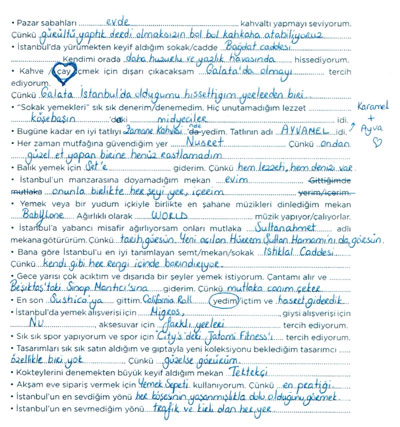 • Pazar sabahları evde kahvaltı yapmayı seviyorum.
Çünkü gürültü yaptık derdi olmaksızın bol bol kahkaha atabiliyoruz
• İstanbul'da yürümekten keyif aldığım sokak/cadde Bağdat caddesi
Kendimi orada daha huzurlu ve yazlık havasında hissediyorum.
• Kahve / çay içmek için dışarı çıkacaksam Galata'da olmayı tercih
ediyorum.
Çünkü Galata İstanbul'da olduğumu hissettiğim yerlerden biri.
• "Sokak yemekleri" sık sık denerim/denemedim. Hiç unutamadığım lezzet
köşebaşın 'daki midyeciler idi.
• Bugüne kadar en iyi tatlıyı Zamane Kahvesi 'nde yedim. Tatlının adı AYVAMEL idi.
Karamel
+
Ayva
• Her zaman mutfağına güvendiğim yer Nusret Çünkü ondan
güzel et yapan birine henüz rastlamadım
• Balık yemek için Set'e giderim. Çünkü hem lezzeti, hem denizi var.
• İstanbul'un manzarasına doyamadığım mekan evim Gittiğimde
mutlaka onunla birlikte her şeyi yer, içerim yerim/içerim.
• Yemek veya bir yudum içkiyle birlikte en şahane müzikleri dinlediğim mekan
Babylone Ağırlıklı olarak WORLD müzik yapıyor/çalıyorlar.
• İstanbul'a yabancı misafir ağırlıyorsam onları mutlaka Sultanahmet adlı
mekana götürürüm. Çünkü tarih görsün. Yeni açılan Hürrem Sultan Hamamı'nı da görsün.
• Bana göre İstanbul'u en iyi tanımlayan semt/mekan/sokak İstiklal Caddesi
Çünkü kendi gibi her rengi içinde barındırıyor.
• Gece yarısı çok acıktım ve dışarıda bir şeyler yemek istiyorum. Çantamı alır ve
Beşiktaş'taki Sinop Mantıcı'sına giderim. Çünkü mutlaka canım çeker
• En son Sushico'ya gittim. California Roll yedim/içtim ve hasret giderdik
• İstanbul'da yemek alışverişi için Migros, giysi alışverişi için
Nu, aksesuvar için farklı yerleri tercih ediyorum.
• Sık sık spor yapıyorum ve spor için City's deki Jatomi Fitness'ı tercih ediyorum.
• Tasarımları sık sık satın aldığım ve gıptayla yeni koleksiyonu beklediğim tasarımcı
özellikle biri yok Çünkü güzelse görürüm.
• Kokteylerini denemekten büyük keyif aldığım mekan Tektekçi
• Akşam eve sipariş vermek için Yemek Sepeti kullanıyorum. Çünkü en pratiği.
• İstanbul'un en sevdiğim yönü her köşesinin yaşanmışlıkla dolu olduğunu görmek.
• İstanbul'un en sevmediğim yönü trafik ve kirli olan her yer.